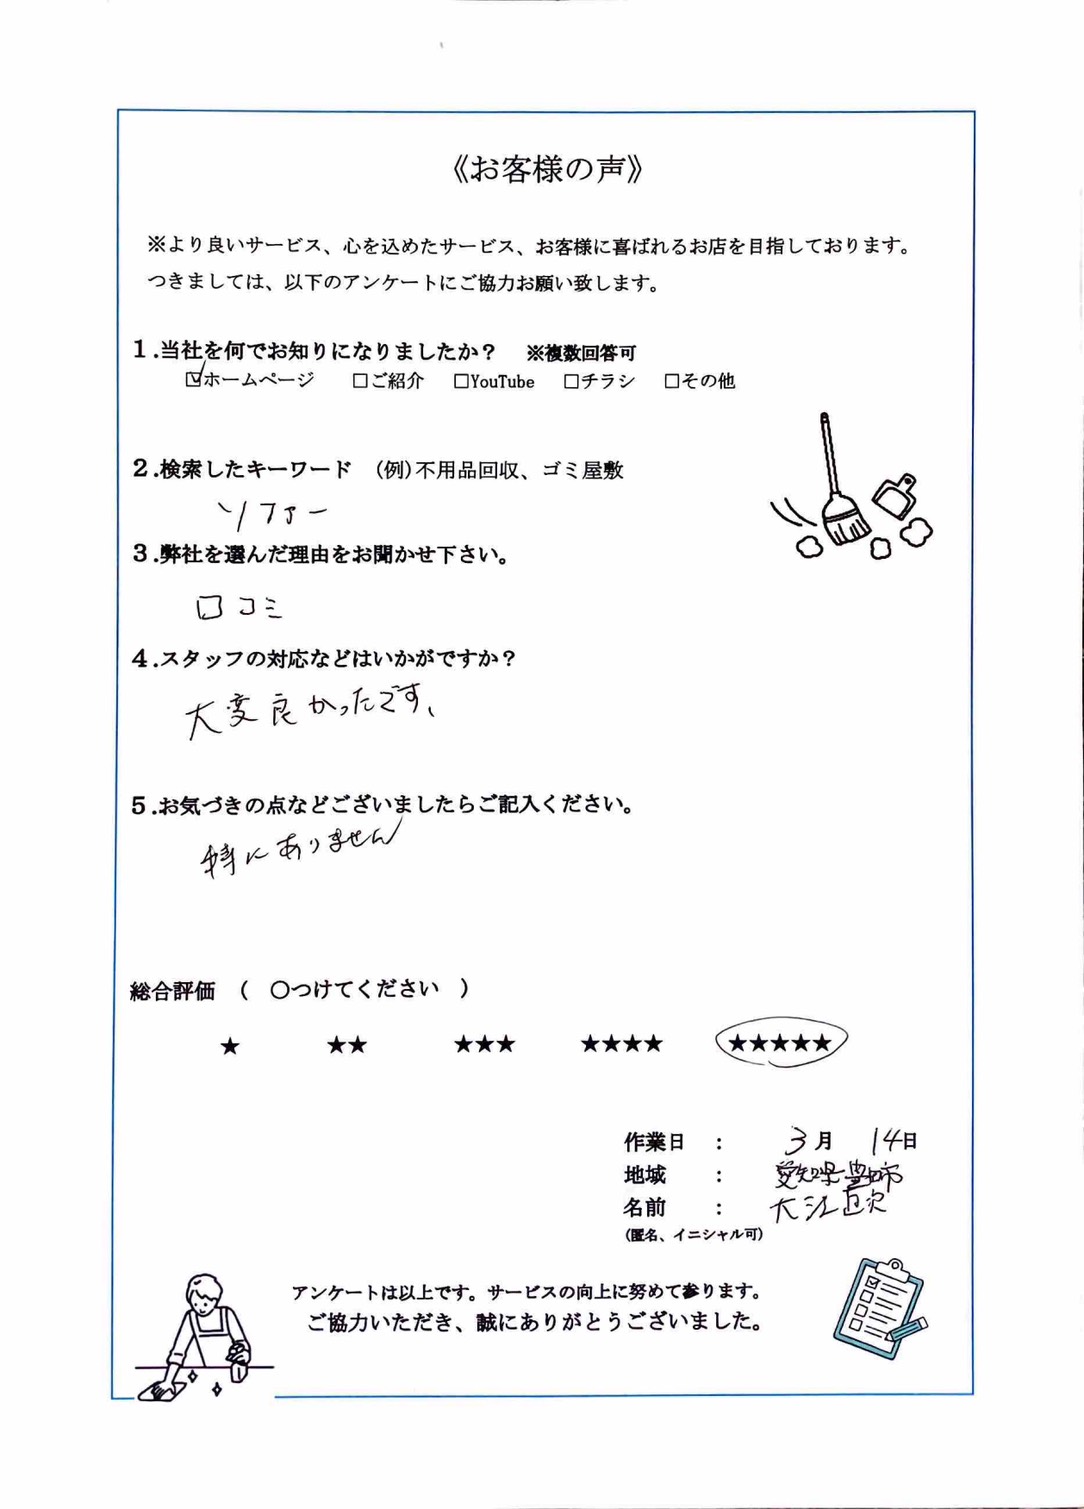 《お客様の声》
※より良いサービス、心を込めたサービス、お客様に喜ばれるお店を目指しております。
つきましては、以下のアンケートにご協力お願い致します。
1.当社を何でお知りになりましたか？ ※複数回答可
☑ホームページ □ご紹介 □YouTube □チラシ □その他
2.検索したキーワード (例)不用品回収、ゴミ屋敷
ソファー
3.弊社を選んだ理由をお聞かせ下さい。
口コミ
4.スタッフの対応などはいかがですか？
大変良かったです、
5.お気づきの点などございましたらご記入ください。
特にありません
総合評価 ( ○つけてください )
★ ★★ ★★★ ★★★★ ★★★★★
作業日 : 3月 14日
地域 : 愛知県豊田市
名前 : 大江直次
(匿名、イニシャル可)
アンケートは以上です。サービスの向上に努めて参ります。
ご協力いただき、誠にありがとうございました。